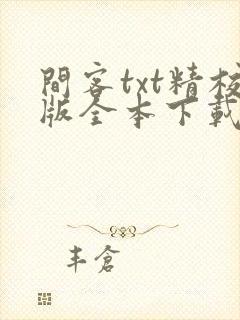 間客txt精校
版全本下載
丰倉